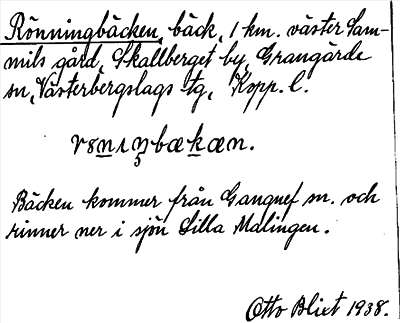 Rönningbäcken, bäck, 1 km. väster Sam-
mils gård, Skallberget by, Grangärde
sn, Västerbergslags tg, Kopp. l.
Bäcken kommer från Gangnef sn. och
rinner ner i sjön Lilla Malingen.
Otto Blixt 1938.